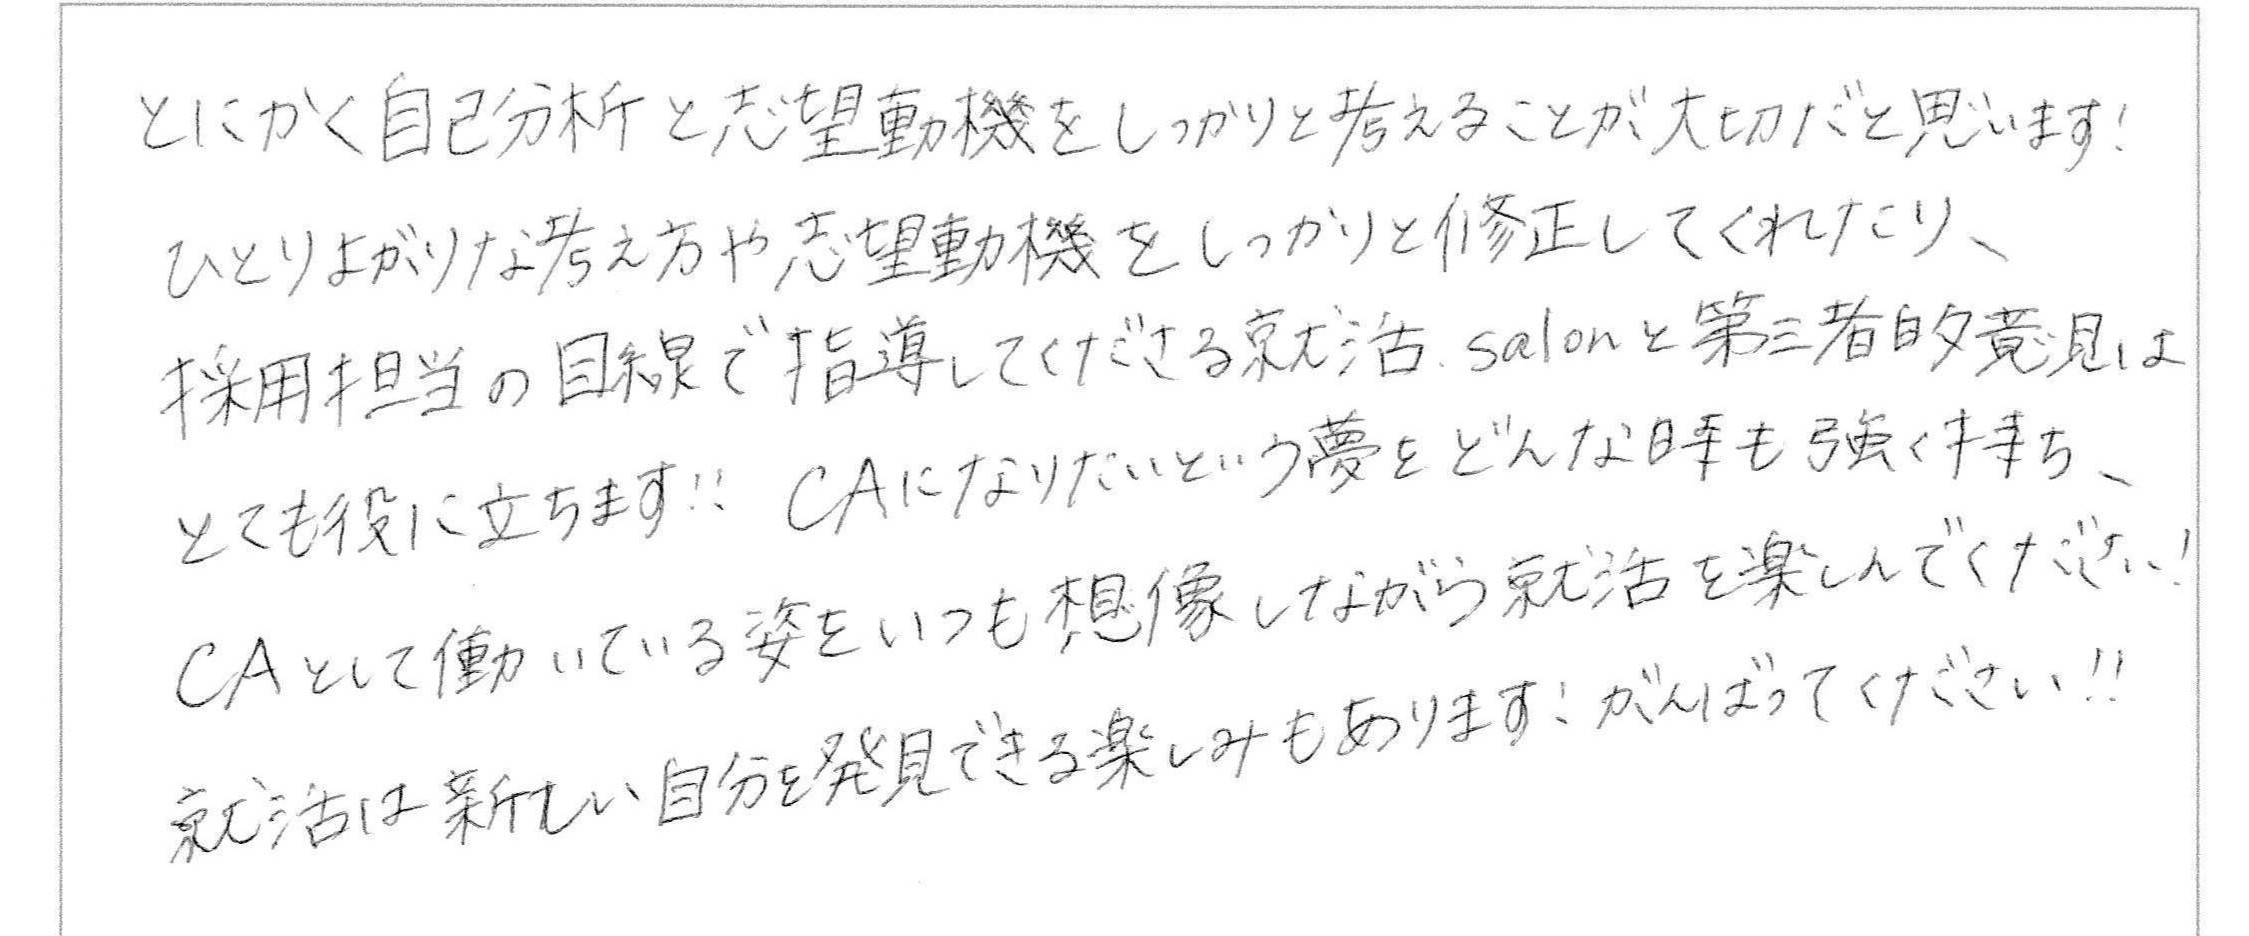 とにかく自己分析と志望動機をしっかりと考えることが大切だと思います!
ひとりよがりな考え方や志望動機をしっかりと修正してくれたり、
採用担当の目線で指導してくださる就活.salonと第三者的意見は
とても役に立ちます!! CAになりたいという夢をどんな時も強く持ち、
CAとして働いている姿をいつも想像しながら就活を楽しんでください!
就活は新しい自分を発見できる楽しみもあります!がんばってください!!